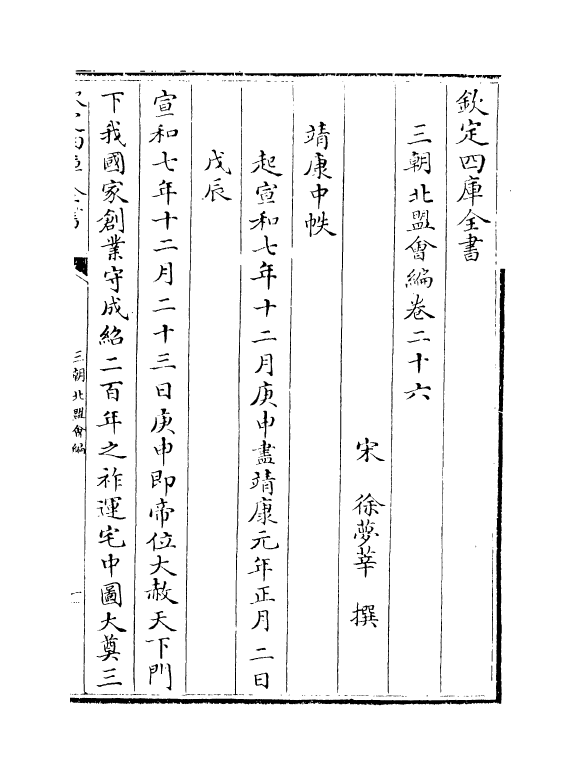 欽定四庫全書
三朝北盟會編卷二十六
宋 徐夢莘 撰
靖康中帙
起宣和七年十二月庚申盡靖康元年正月二日
戊辰
宣和七年十二月二十三日庚申即帝位大赦天下門
下我國家創業守成紹二百年之祚運宅中圖大奠三
三朝北盟會編
一